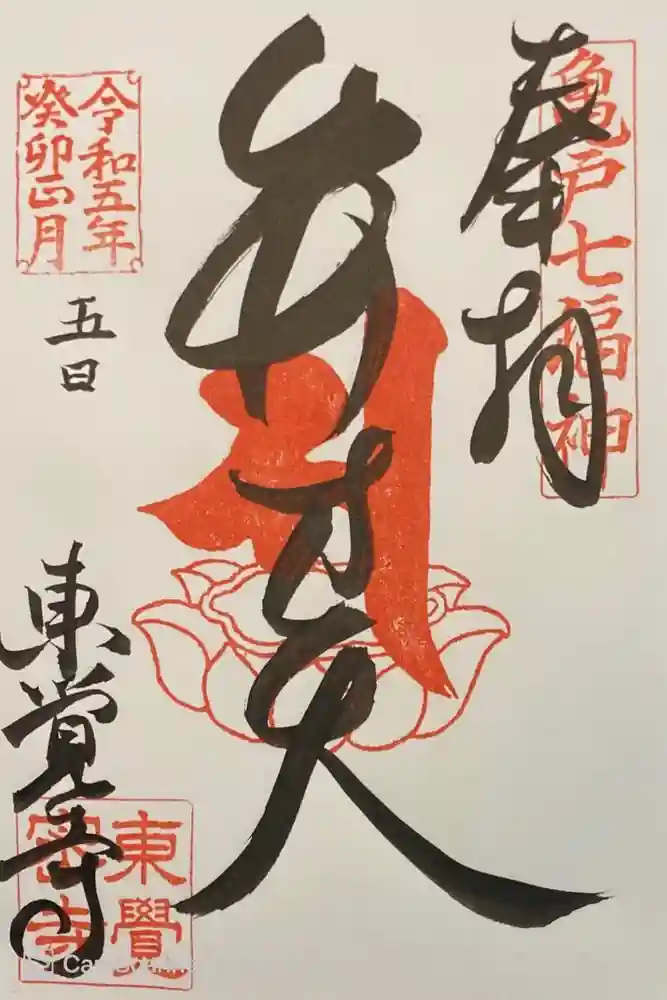 奉拝
亀戸七福神
弁才天
令和五年
癸卯正月
五日
東覺寺
東覺
密寺